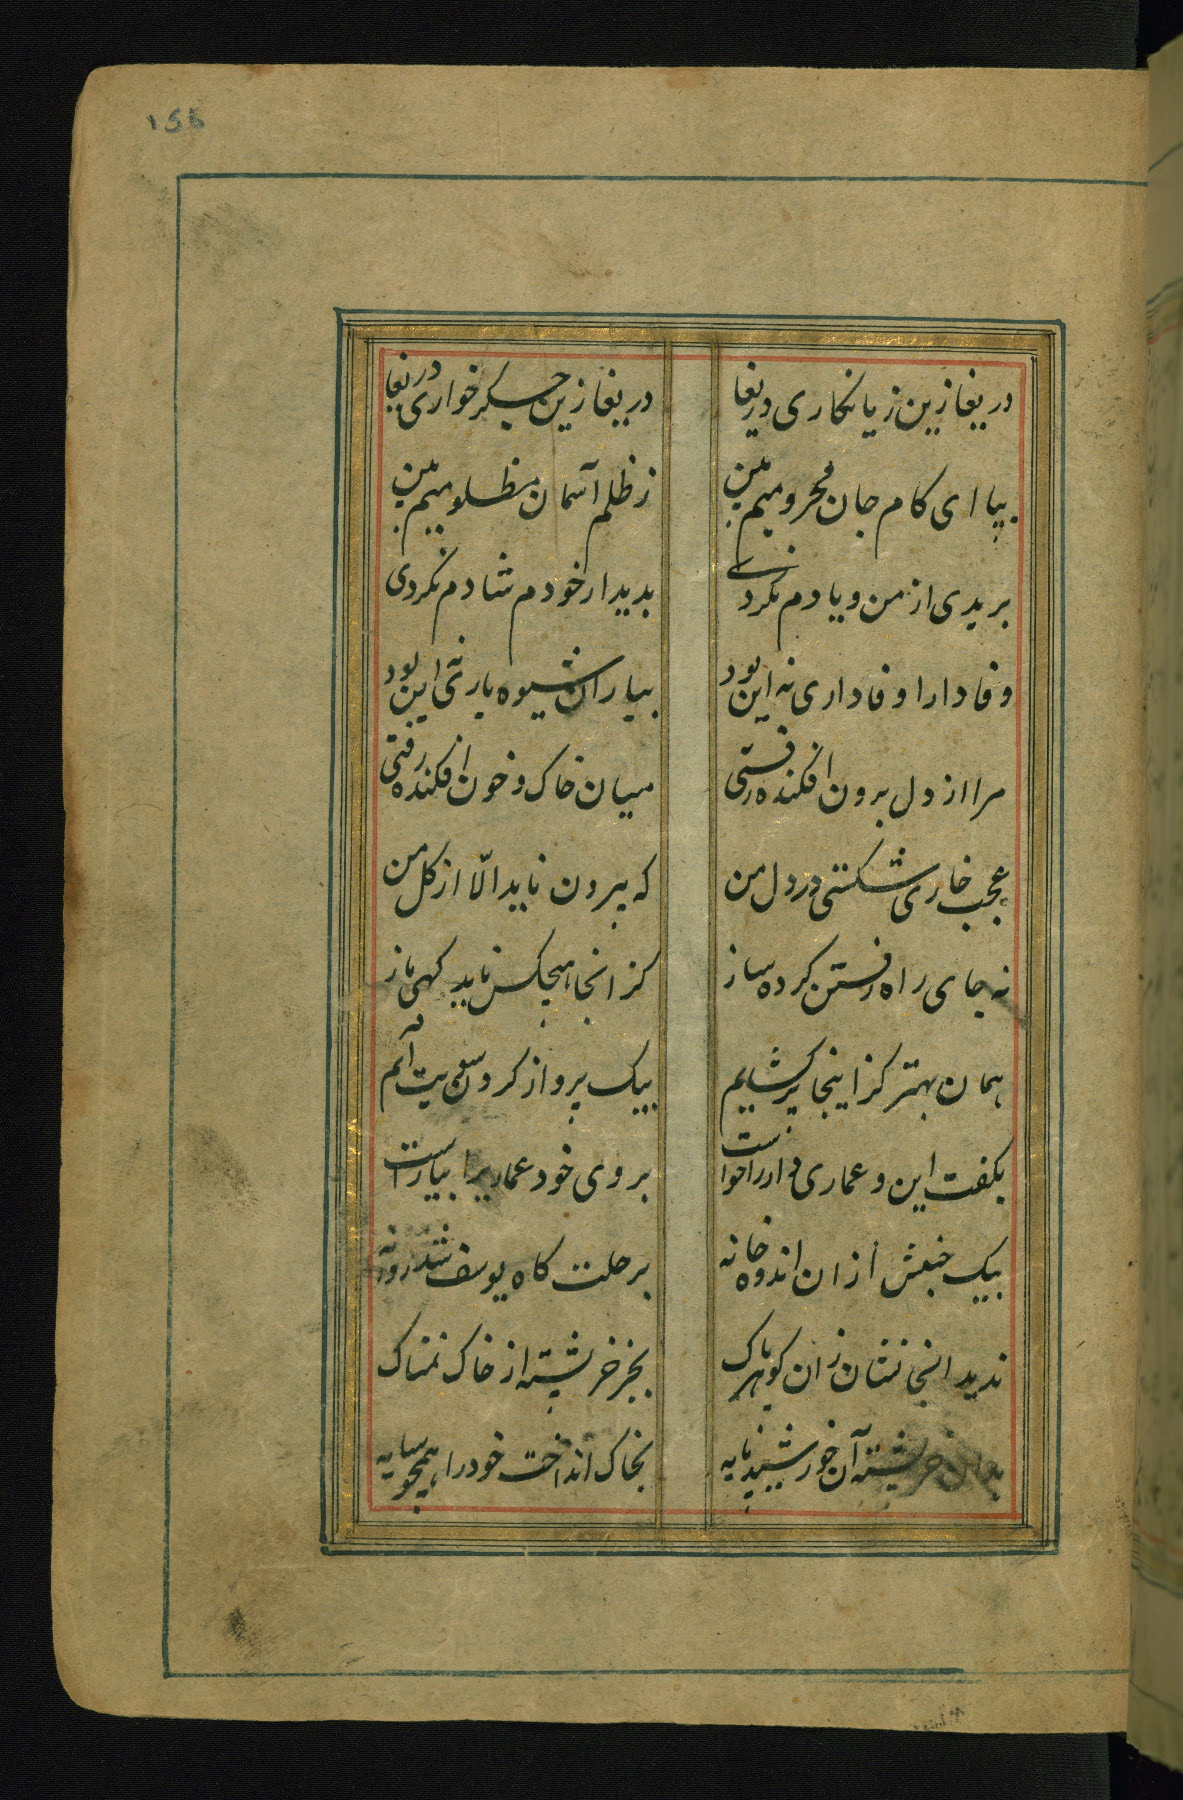 ۱۵۵
دریغا زین زیانکاری دریغا
دریغا زین جگرخواری دریغا
بیا ای کام جان محرومیم بین
ز ظلم آسمان مظلومیم بین
بریدی از من و یادم نکردی
بدیدار خودم شادم نکردی
وفادارا وفاداری نه این بود
بیاران شیوه یاری نه این بود
مرا از دل برون افکنده رفتی
میان خاک و خون افکنده رفتی
عجب خاری شکستی در دل من
که بیرون ناید الّا از کل من
نه جای راه رفتن کرده ساز
کز انجا هیچکس ناید کهی باز
همان بهتر کز اینجا پر کشایم
بیک پرواز کردن سویت آیم
بکفت این و عماری دار را خواست
بروی خود عماریرا بیاراست
بیک جنبش از ان اندوه خانه
برحلت کاه یوسف شد روانه
ندید انجا نشان زان کوهر پاک
بجز خرپشته از خاک نمناک
خرپشته آن خورشید پایه
بخاک انداخت خود را همچو سایه